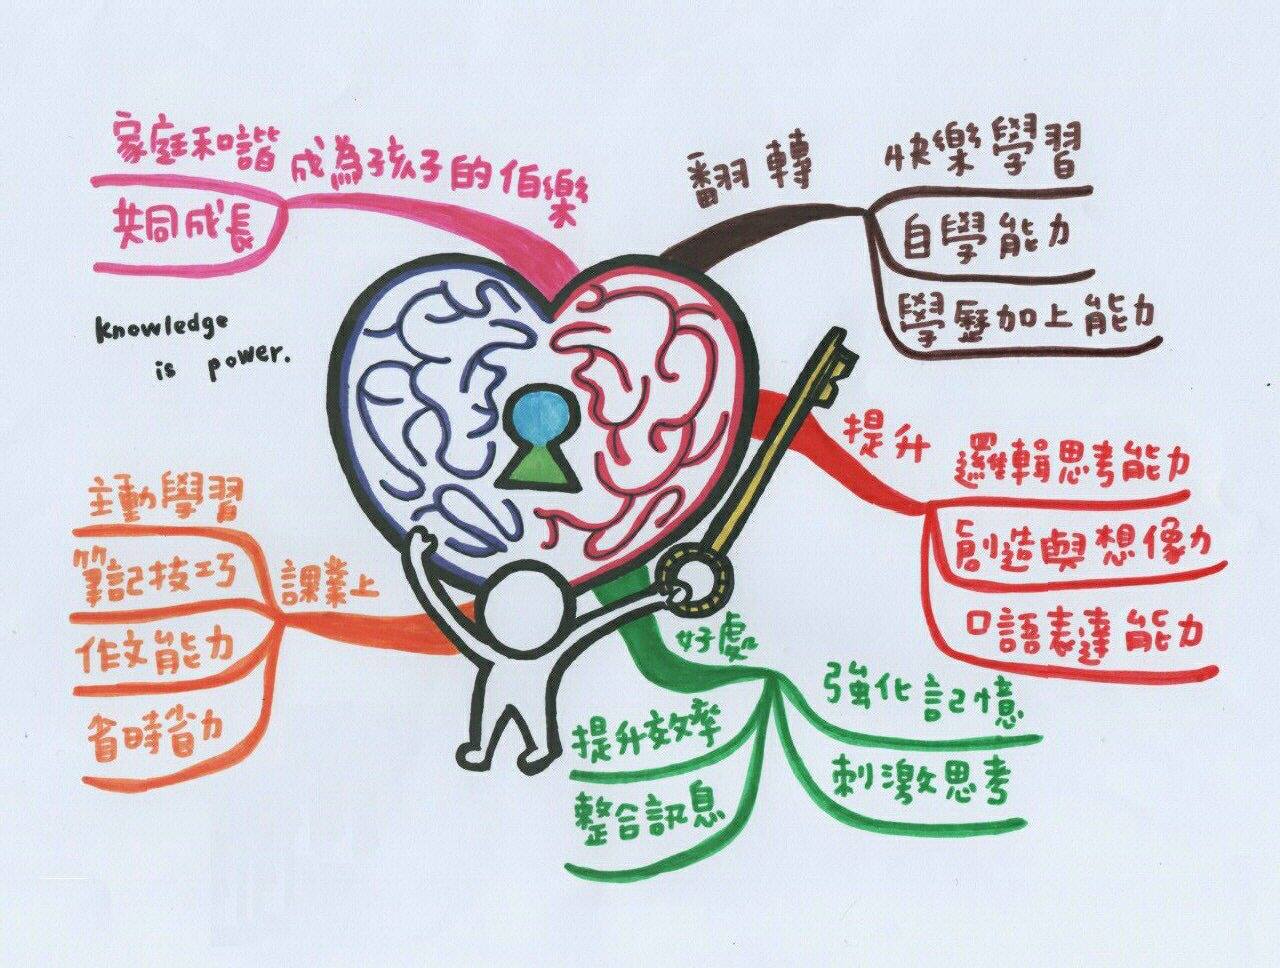 家庭和諧
共同成長
成為孩子的伯樂
knowledge
is power.
翻轉
快樂學習
自學能力
學歷加上能力
提升
邏輯思考能力
創造與想像力
口語表達能力
好處
強化記憶
刺激思考
提升效率
整合訊息
課業上
主動學習
筆記技巧
作文能力
省時省力